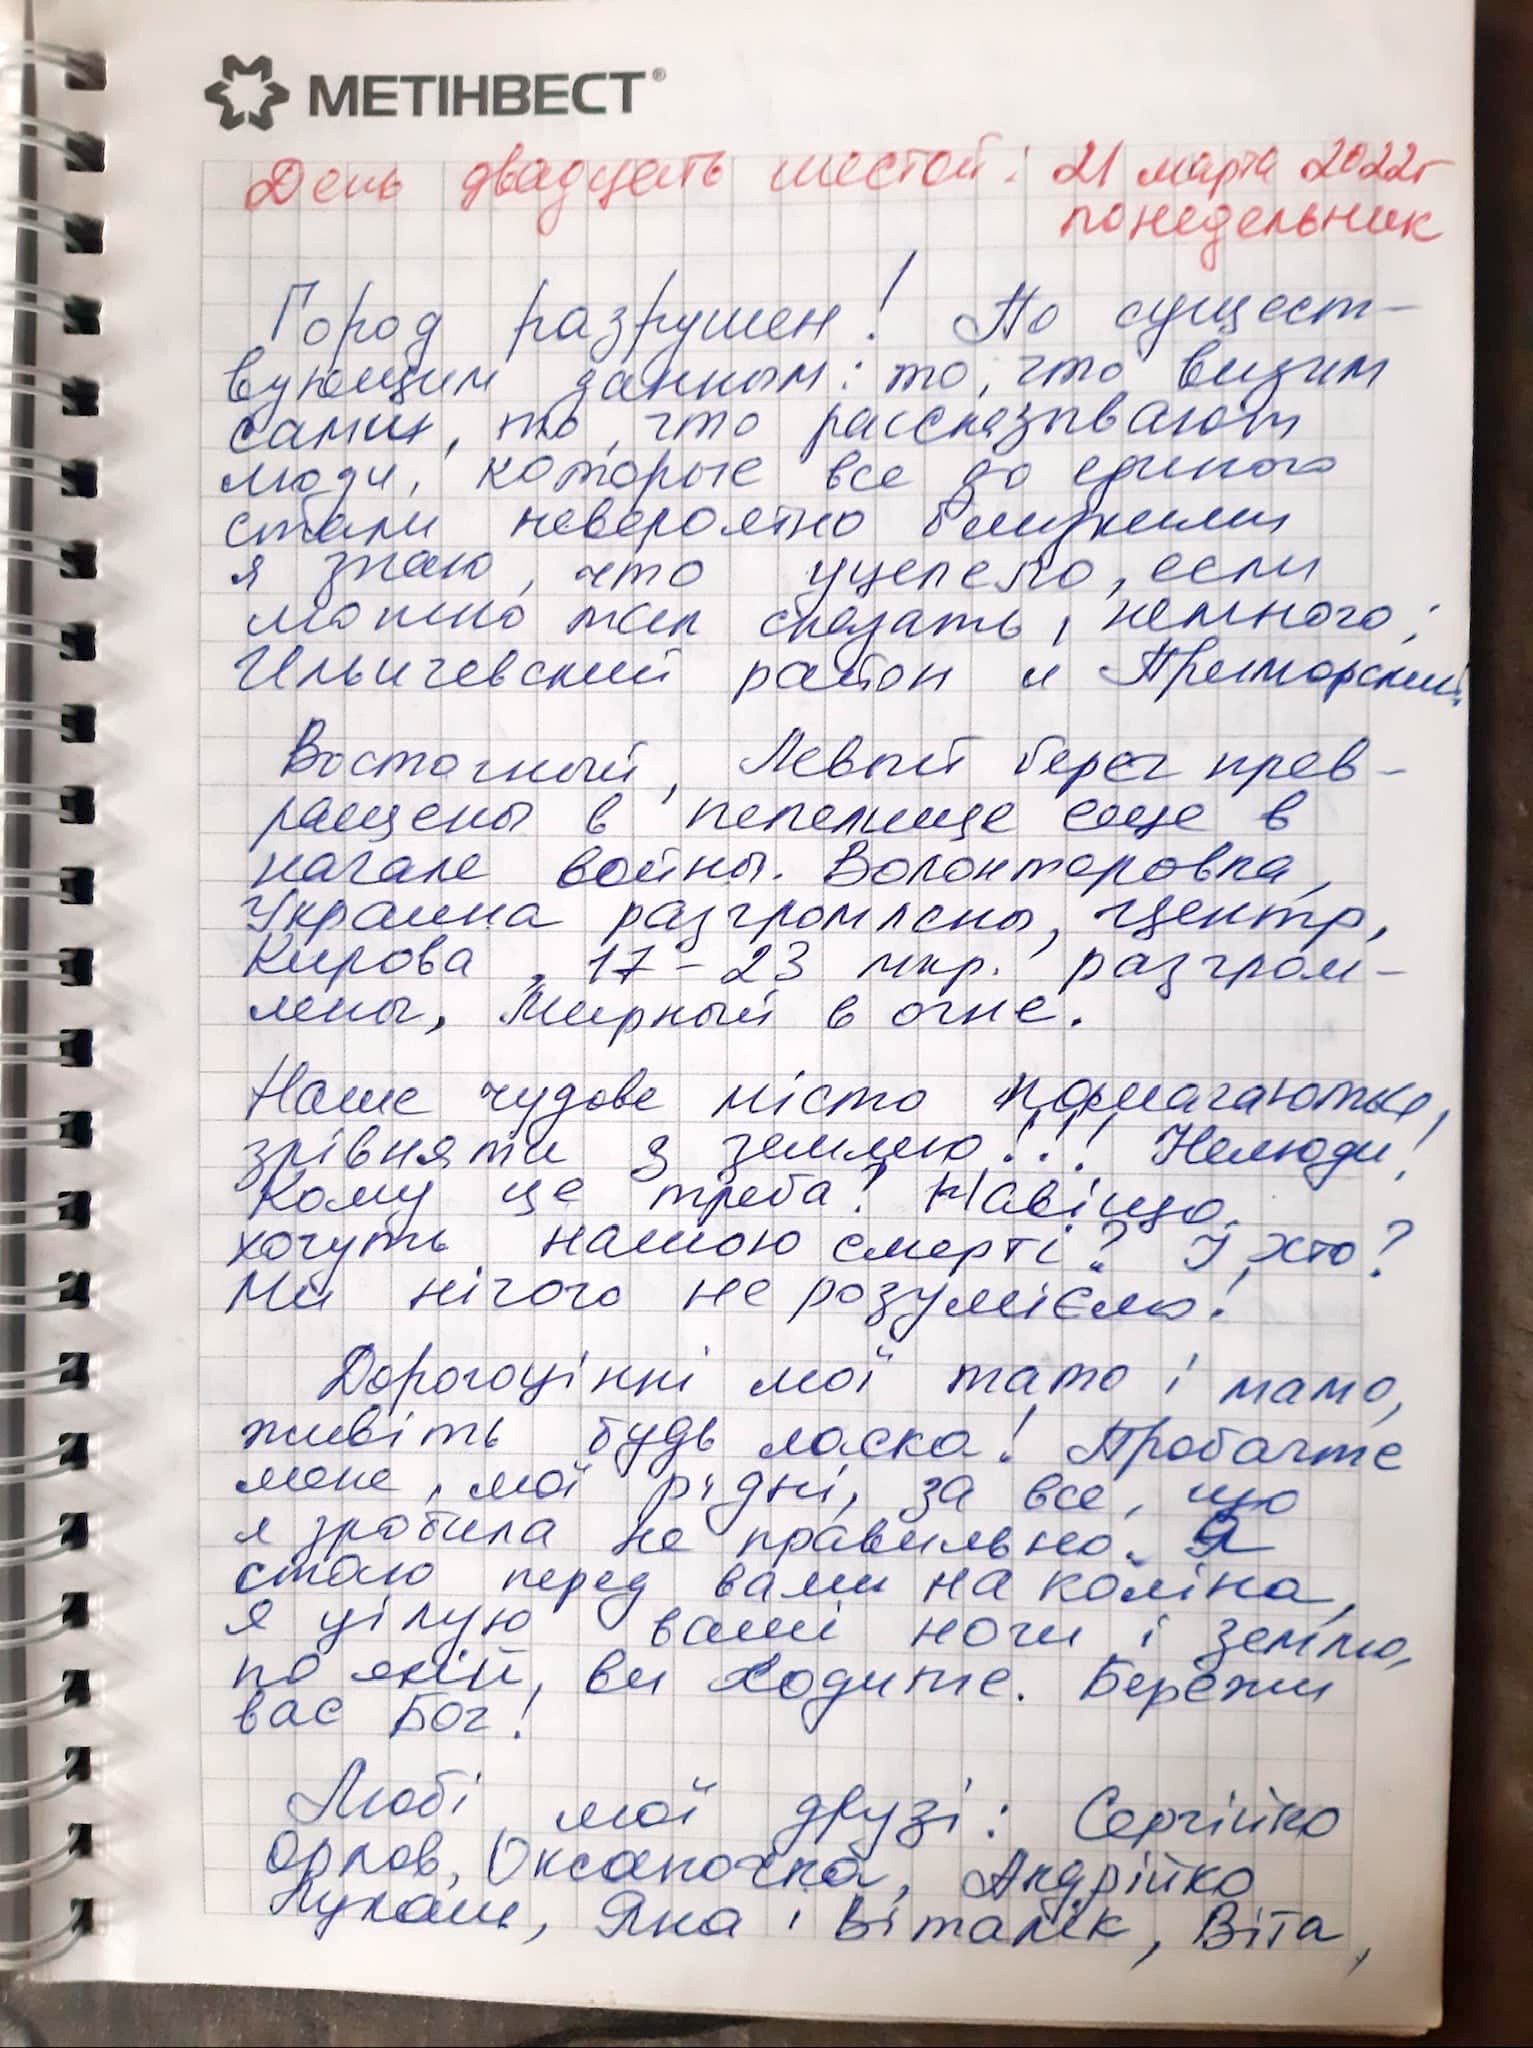 МЕТІНВЕСТ®
День двадцать шестой: 21 марта 2022г
понедельник
Город разрушен! По сущест-
вующим данным: то, что видим
сами, то, что рассказывают
люди, которые все до единого
стали невероятно близкими
я знаю, что уцелело, если
можно так сказать, немного:
Ильичевский район и Приморский.
Восточный, Левый берег прев-
ращены в пепелище еще в
начале войны. Волонтеровка,
Украина разгромлены, Центр,
Кирова, 17-23 мкр. разгром-
лены, Мирный в огне.
Наше чудове місто намагаються,
зрівняти з землею!!! Нелюди!
Кому це треба? Навіщо
хочуть нашою смерті? І, хто?
Ми нічого не розуміємо!
Дорогоцінні мої тато і мамо,
живіть будь ласка! Пробачте
мене, мої рідні, за все, що
я зробила не правильно. Я
стаю перед вами на коліна,
я цілую ваші ночи і землю,
по якій, ви ходите. Бережи
вас Бог!
Любі мої друзі: Сергійко
Орлов, Оксаночка, Андрійко
Лукаш, Яна і Віталік, Віта,